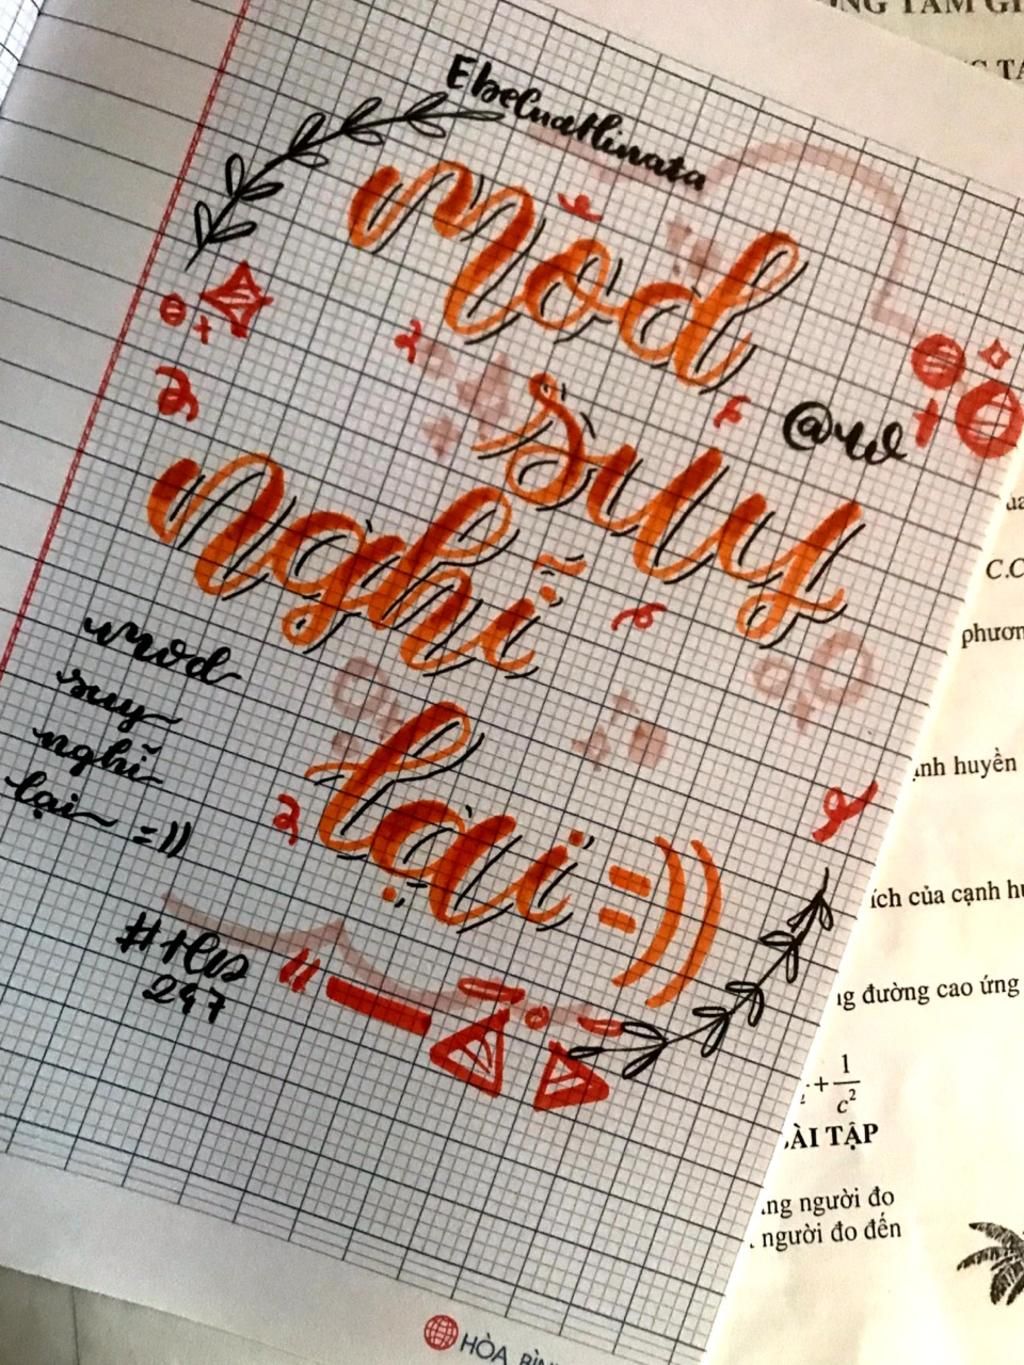 EbecuaHinata
mod
suy
@w
nghĩ
lại =))
mod
suy
nghĩ
lại =))
247
HÒA BÌN
C.C
phươn
nh huyền
ích của cạnh h
g đường cao ứng
+ 1/c²
ÀI TẬP
ng người đo
người đo đến